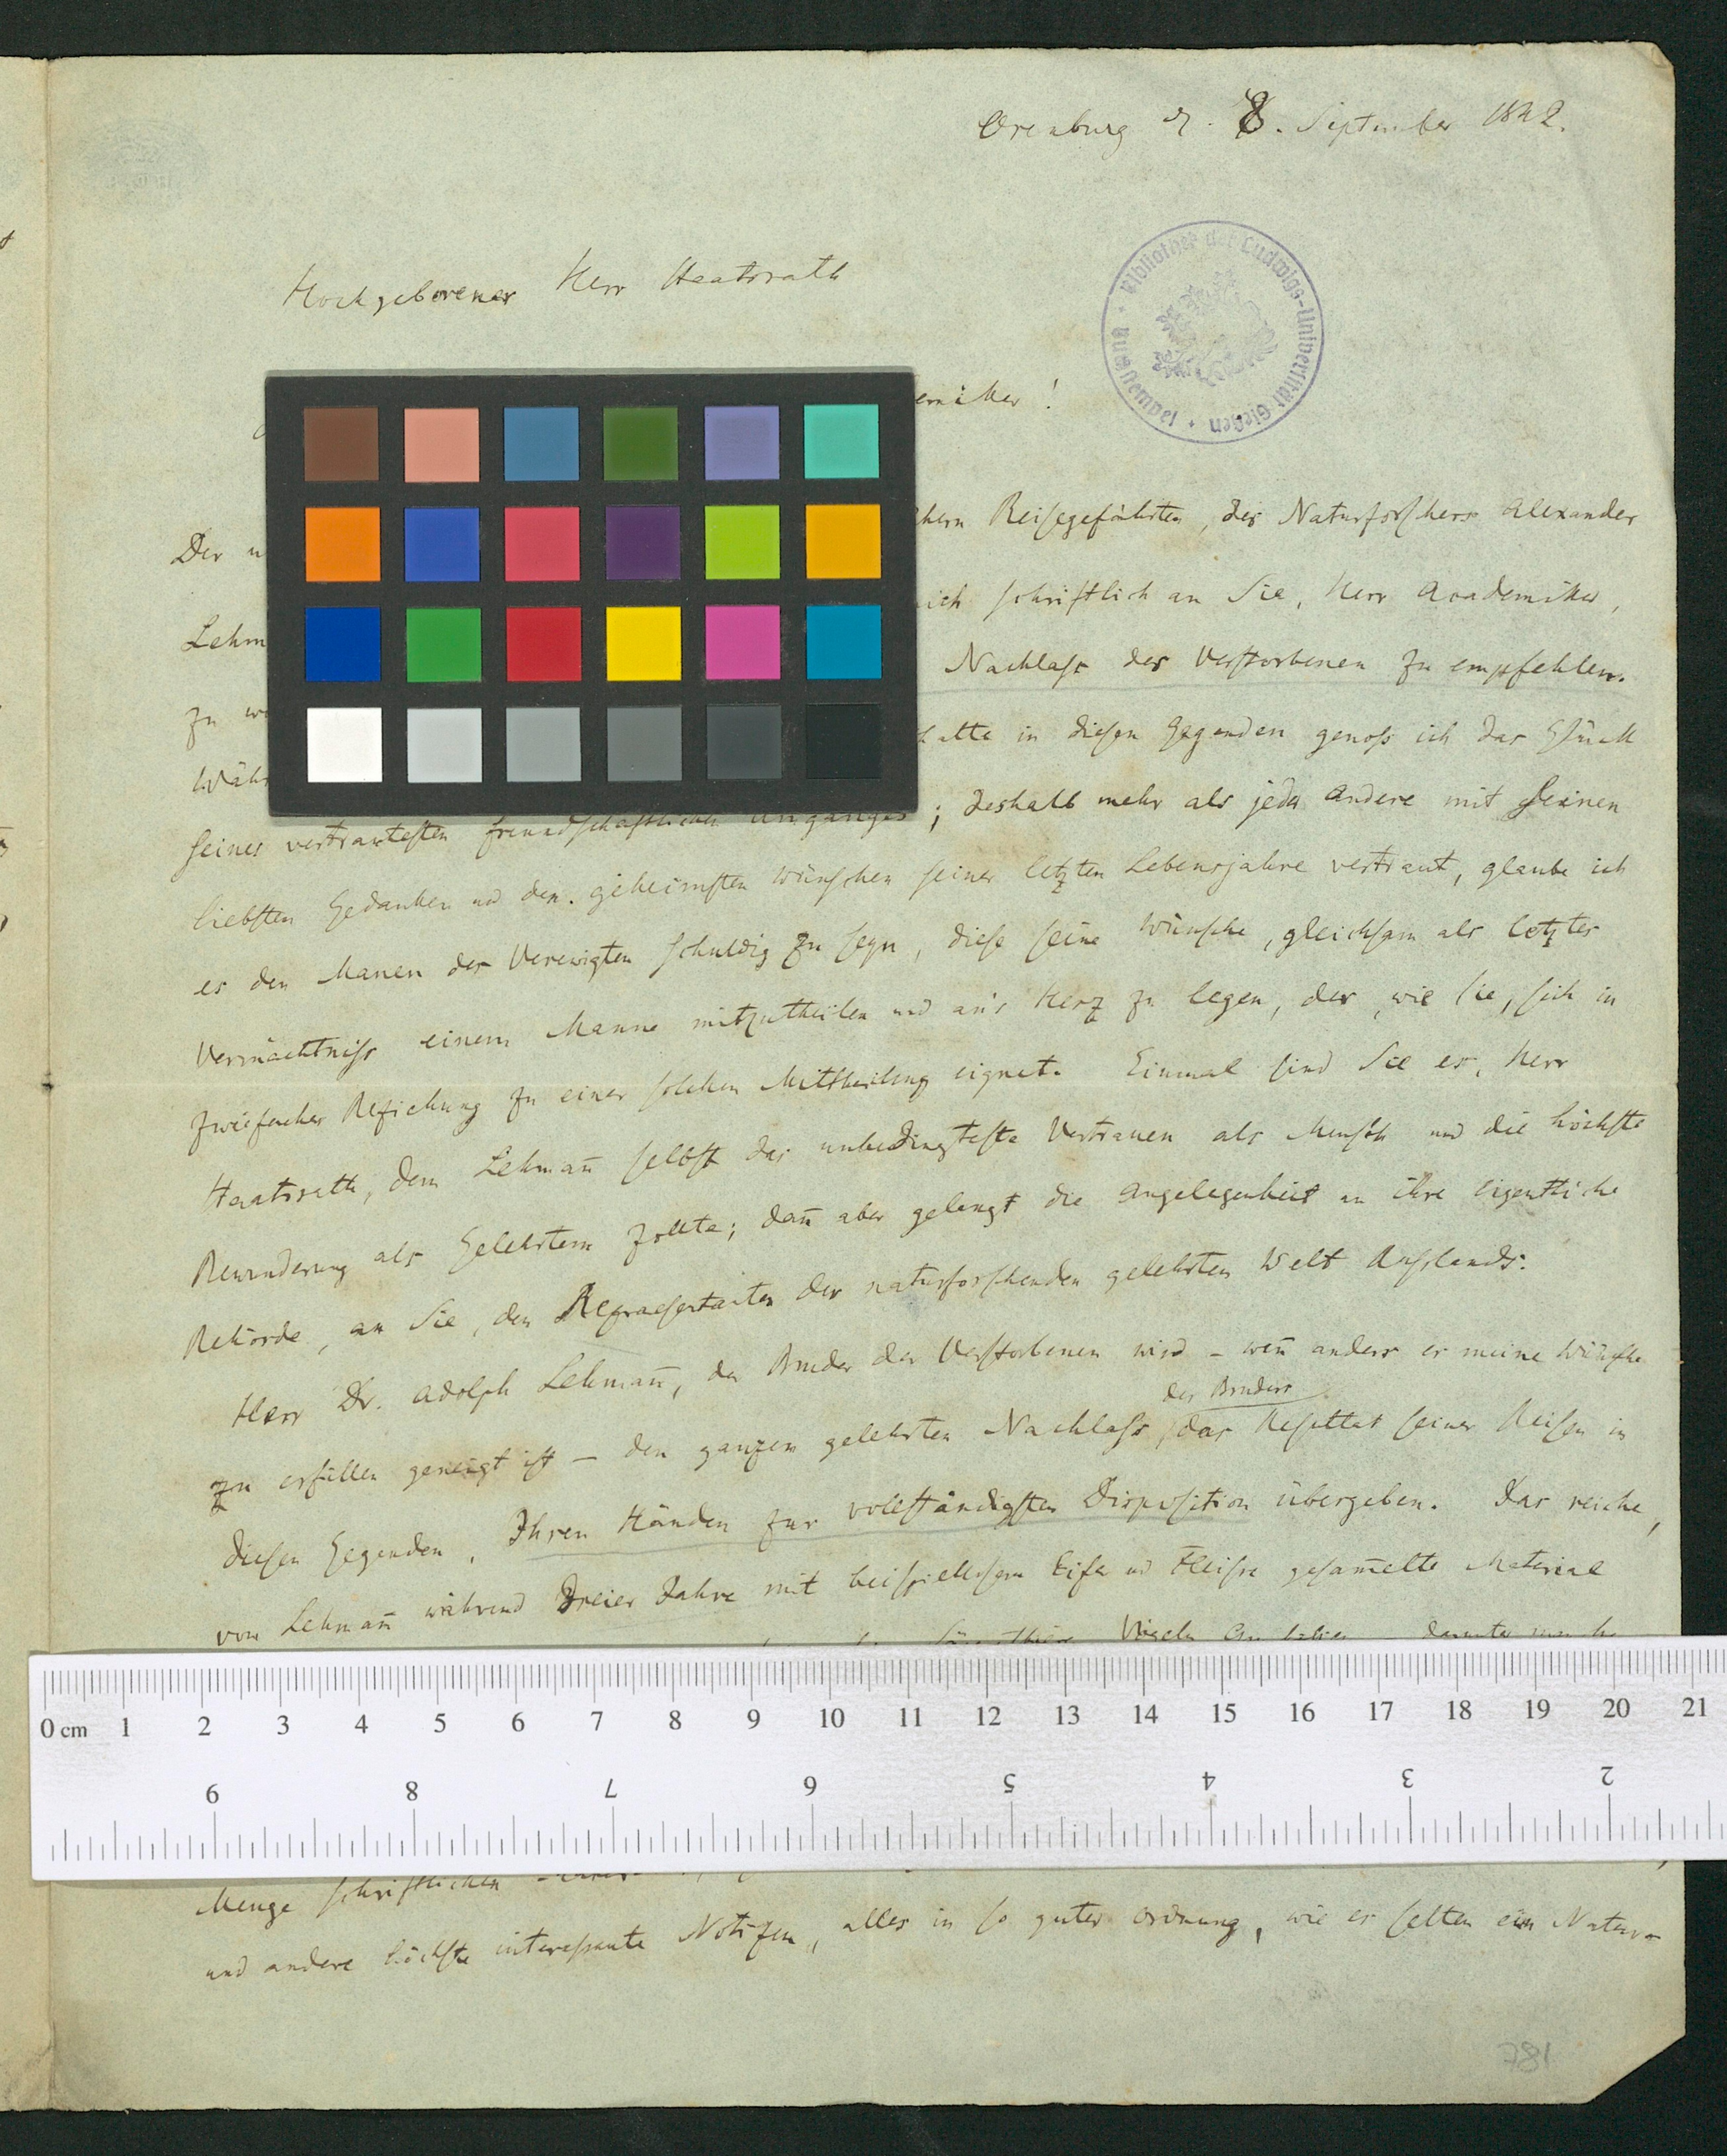 Orenburg d. 8. September 1842.
Hochgeborener Herr Staatsrath
emiker!
Bibliothek der Ludwigs-Universität Gießen · Tauschstempel
Der
hern Reisegefährten, des Naturforschers Alexander
Lehm
ich schriftlich an Sie, Herr Academiker,
zu
Nachlass des Verstorbenen zu empfehlen.
Währ
in diesen Gegenden genoss ich das Glück
seines vertrautesten freundschaftlichen Umganges; deshalb mehr als jeder andere mit seinen
liebsten Gedanken und den geheimsten Wünschen seiner letzten Lebensjahre vertraut, glaube ich
es den Manen des Verewigten schuldig zu seyn, diese seine Wünsche, gleichsam als letztes
Vermächtniss einem Manne mitzutheilen und an's Herz zu legen, der, wie Sie, sich in
zwiefacher Beziehung zu einer solchen Mittheilung eignet. Einmal sind Sie es, Herr
Staatsrath, dem Lehmañ selbst das unbedingteste Vertrauen als Mensch und die höchste
Bewunderung als Gelehrtem zollte; dañ aber gelangt die Angelegenheit an ihre eigentliche
Behörde, an Sie, den Repraesentanten der naturforschenden gelehrten Welt Russlands.
Herr Dr. Adolph Lehmañ, der Bruder des Verstorbenen wird – weñ anders er meine Wünsche
zu erfüllen geneigt ist – den ganzen gelehrten Nachlass des Bruders, das Resultat seiner Reisen in
diesen Gegenden, Ihren Händen zur vollständigsten Disposition übergeben. Das reiche,
von Lehmañ während dreier Jahre mit beispiellosem Eifer und Fleisse gesam̄elte Material
Vögeln darunter manche
0 cm 1 2 3 4 5 6 7 8 9 10 11 12 13 14 15 16 17 18 19 20 21
9 8 7 6 5 4 3 2
Menge schriftlichen
und andere höchst interessante Notizen, alles in so guter Ordnung, wie es selten ein Natur-
781